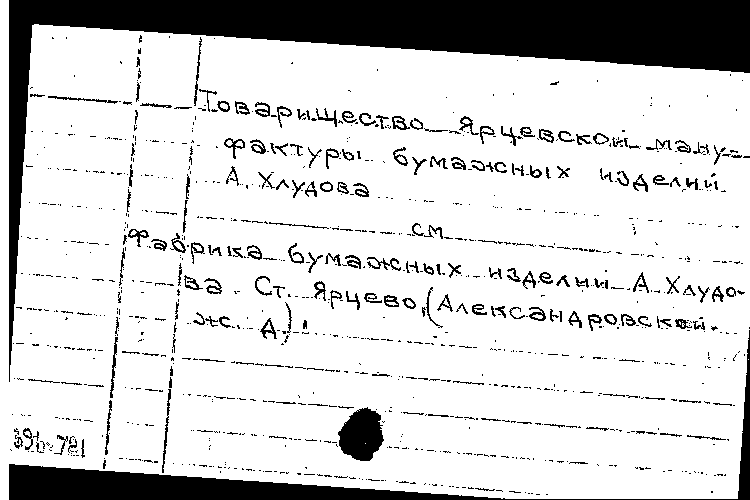 Товарищество Ярцевской ману-
фактуры бумажных изделий
А. Хлудова
см
Фабрика бумажных изделий А. Хлудо-
ва Ст. Ярцево, (Александровской
ж. А)
39б-781